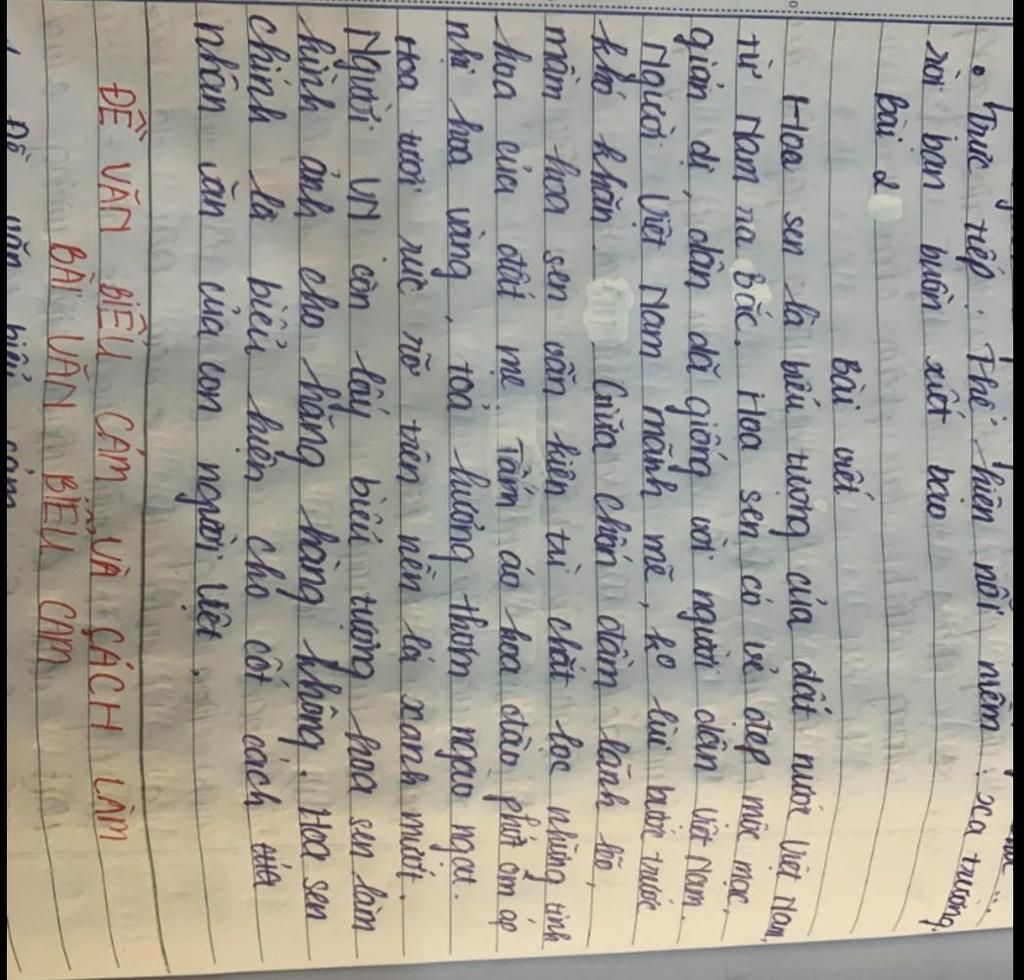 • Trực tiếp. Thể hiện nỗi niềm: xa trường,
rời bạn buồn xiết bao
bài 2
Bài viết
Hoa sen là biểu tượng của đất nước Việt Nam,
từ Nam ra Bắc. Hoa sen có vẻ đẹp mộc mạc,
giản dị, dân dã giống với người dân Việt Nam.
Người Việt Nam mãnh mẽ, ko lùi bước trước
khó khăn. Giữa chốn đầm lãnh lẽo,
mầm hoa sen vẫn kiên trì chắt lọc những tinh
hoa của đất mẹ. Tấm áo hoa đào phớt ôm ấp
nhị hoa vàng, toả hương thơm ngào ngạt.
Hoa tươi rực rỡ trên nền lá xanh mướt.
Người VN còn lấy biểu tượng hoa sen làm
hình ảnh cho hãng hàng không. Hoa sen
chính là biểu hiện cho cốt cách
nhân văn của con người Việt.
ĐỀ VĂN BIỂU CẢM VÀ CÁCH LÀM
BÀI VĂN BIỂU CẢM
Đề văn biểu cảm